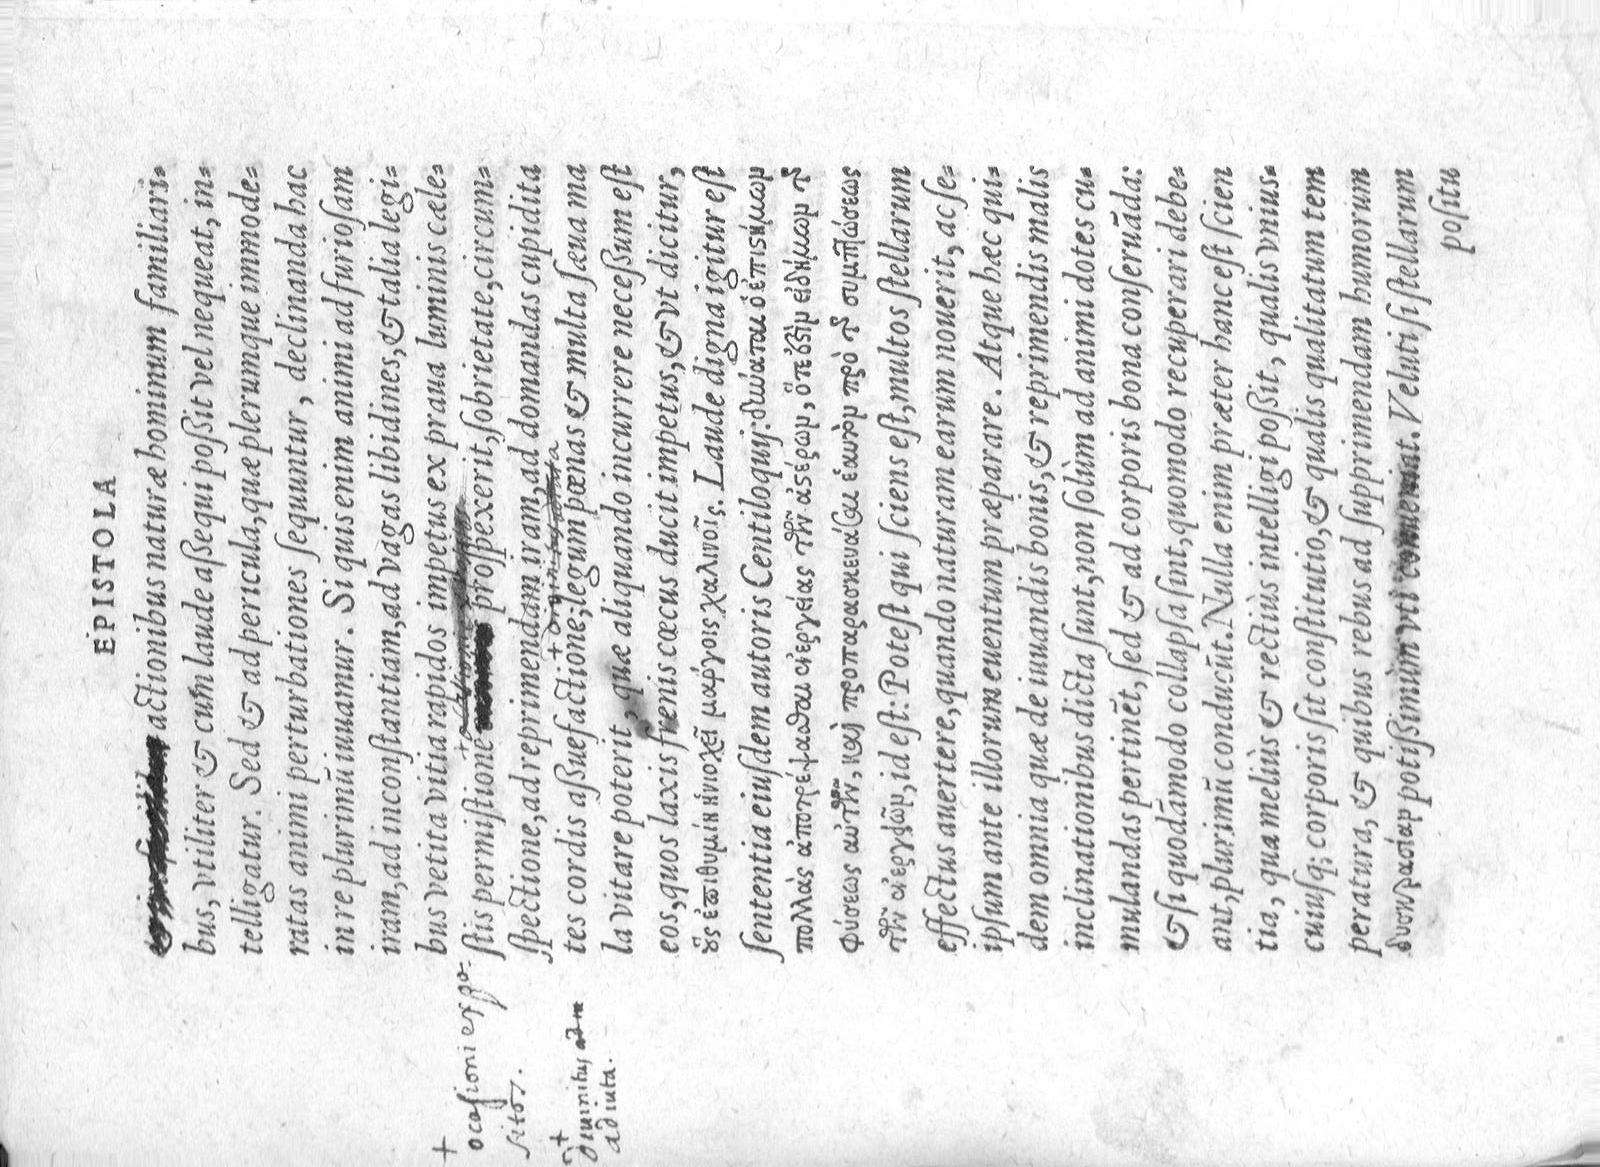 EPISTOLA
actionibus naturæ hominum familiari=
bus, vtiliter & cum laude aßequi poßit vel nequeat, in=
telligatur. Sed & ad pericula, quæ plerumque immode=
ratas animi perturbationes ſequuntur, declinanda hac
in re plurimū iuuamur. Si quis enim animi ad furioſam
iram, ad inconſtantiam, ad vagas libidines, & talia legi=
bus vetita vitia rapidos impetus ex praua luminis cæle=
ſtis permiſtione proſpexerit, ſobrietate, circum=
ſpectione, ad reprimendam iram, ad domandas cupidita
tes cordis aßuefactione; legum pœnas & multa ſæua ma
la vitare poterit, quæ aliquando incurrere neceßum eſt
eos, quos laxis frenis cœcus ducit impetus, & vt dicitur,
οὓς ἐπιθυμίη ἡνιοχεῖ μάργοις χαλινοῖς. Laude digna igitur eſt
ſententia eiuſdem autoris Centiloquij: δύναται ὁ ἐπιστήμων
πολλὰς ἀποτρέψασθαι ἐνεργείας τῶν ἀστέρων, ὅτε ἐστὶν εἰδήμων τῆς
φύσεως αὐτῶν, καὶ προπαρασκευάσαι ἑαυτὸν πρὸ τῆς συμπτώσεως
τῶν ἐνεργειῶν, id eſt: Poteſt qui ſciens eſt, multos ſtellarum
effectus auertere, quando naturam earum nouerit, ac ſe=
ipſum ante illorum euentum præparare. Atque hæc qui=
dem omnia quæ de iuuandis bonis, & reprimendis malis
inclinationibus dicta ſunt, non ſolùm ad animi dotes cu=
mulandas pertinēt, ſed & ad corporis bona conſeruāda:
& ſi quodāmodo collapſa ſint, quomodo recuperari debe=
ant, plurimū conducūt. Nulla enim præter hanc eſt ſcien
tia, qua meliùs & rectiùs intelligi poßit, qualis vnius=
cuiuſq; corporis ſit conſtitutio, & qualis qualitatum tem
peratura, & quibus rebus ad ſupprimendam humorum
δυσκρασίαν potißimùm vti conueniat. Veluti ſi ſtellarum
poſitu
+
ocaſioni expo-
sitos.
+
diuinitus
adiuta.